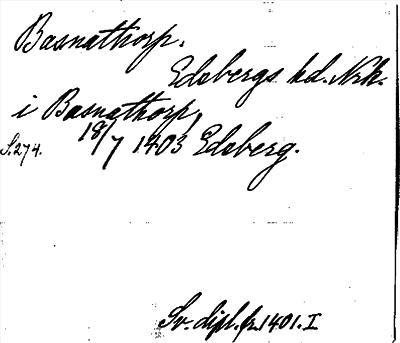 Basnathorp.
Edsbergs hd. Nrk.
i Basnathorp,
S. 274. 18/7 1403 Edsberg.
Sv. dipl. fr. 1401. I